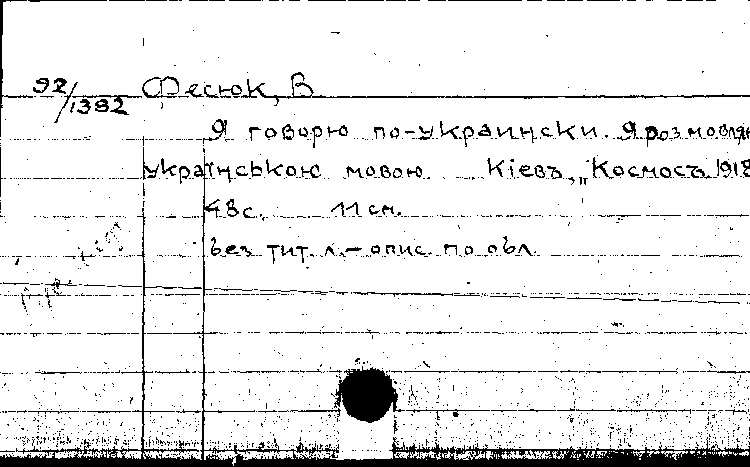 92/1382 Фесюк, В
Я говорю по-украински. Я розмовляю
українською мовою. Кіевъ, „Космосъ 1918
48с. 11 см.
Без тит. л. — опис. по обл.